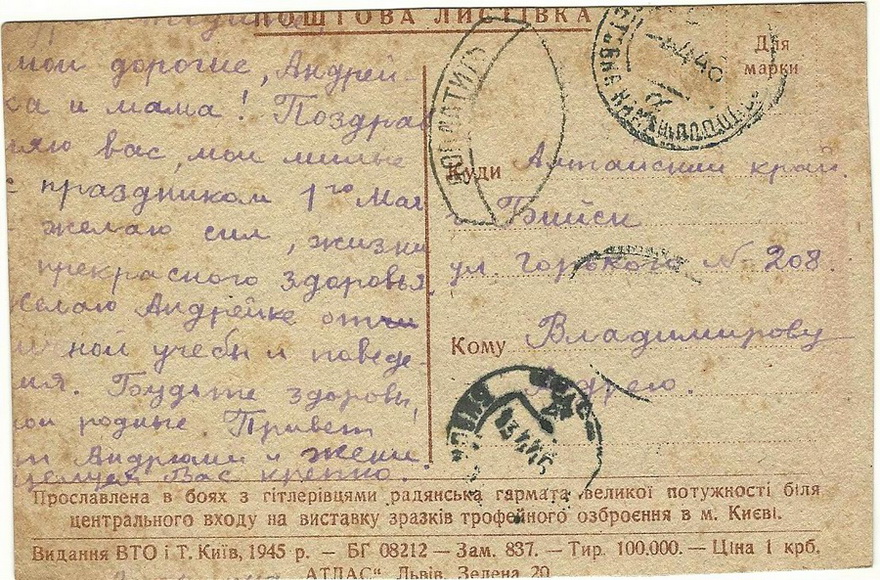 ПОШТОВА ЛИСТІВКА
Для
марки
мои дорогие, Андрей-
ка и мама! Поздрав
ляю вас, мои милые
с праздником 1го Мая
желаю сил, жизни
прекрасного здоровья.
желаю Андрейке отли
чной учебы и поведе-
ния. Будьте здоровы,
мои родные. Привет
от Андрюши и жени.
целуем Вас крепко.
ДОПЛАТИТЬ
Куди Алтайский край.
Бийск
ул Горького № 208.
Кому Владимирову
Андрею.
Прославлена в боях з гітлерівцями радянська гармата великої потужності біля
центрального входу на виставку зразків трофейного озброєння в м. Києві.
Видання ВТО і Т. Київ, 1945 р. — БГ 08212 — Зам. 837. — Тир. 100.000. — Ціна 1 крб.
„АТЛАС“ Львів, Зелена 20